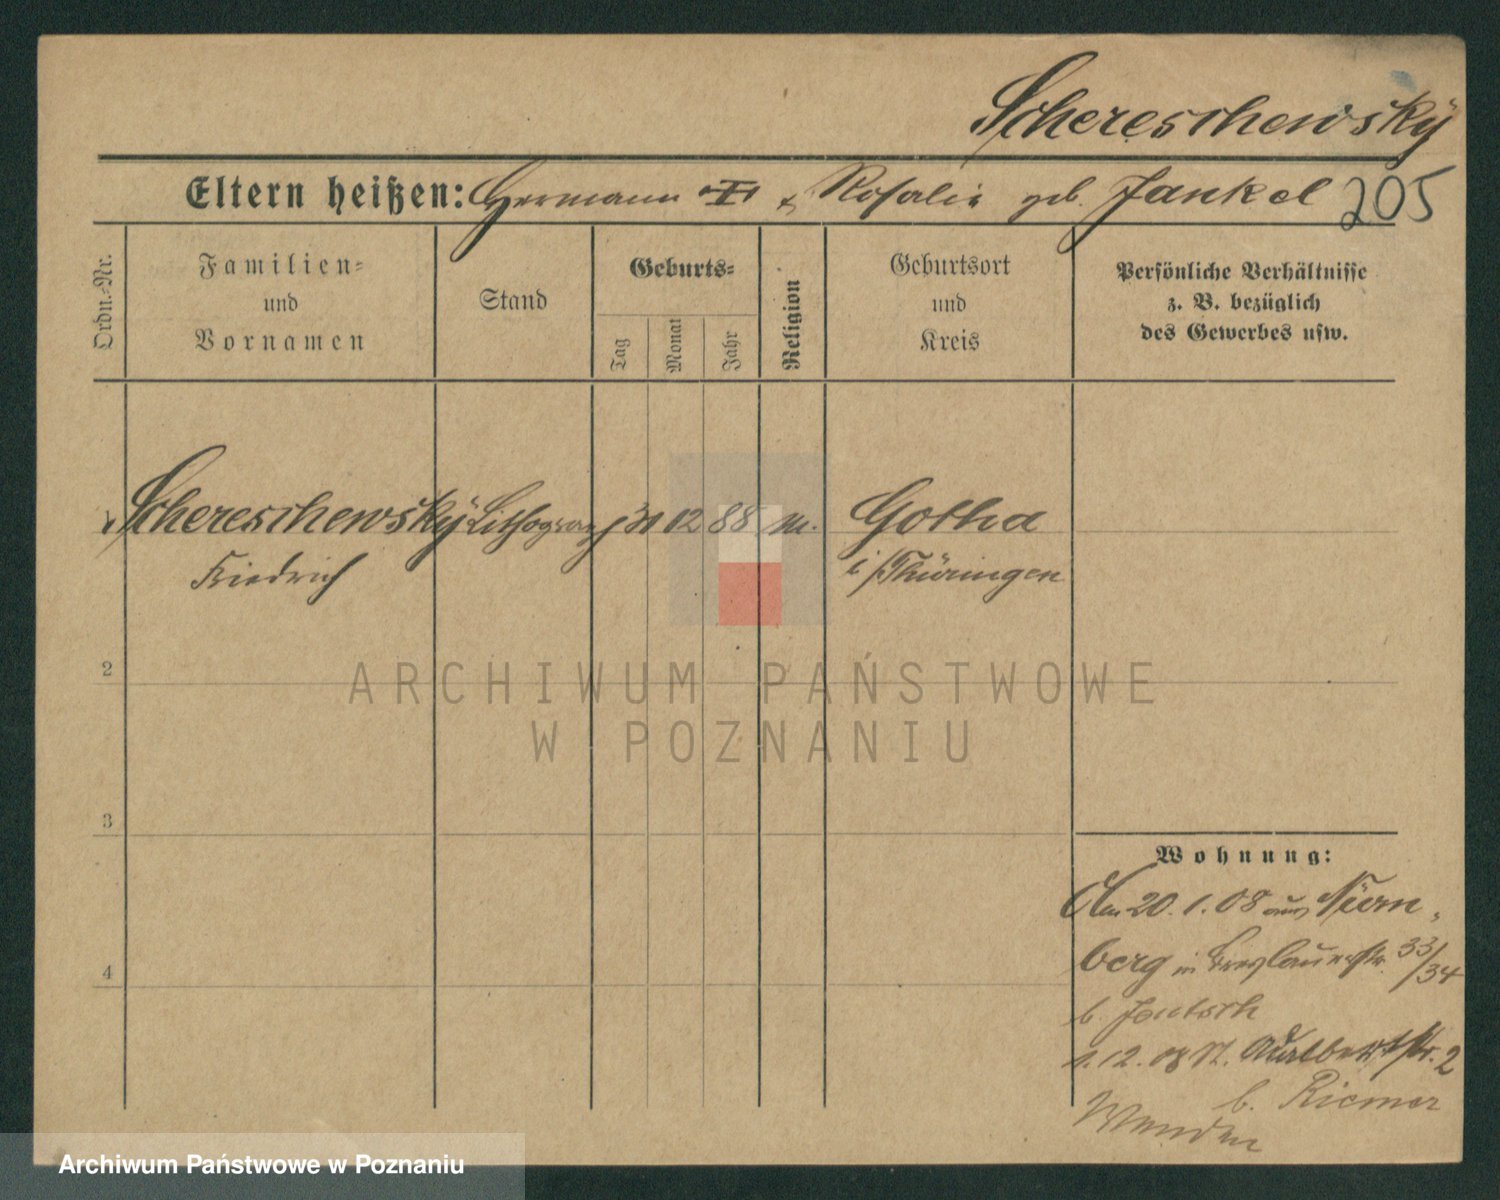 Schereschewsky
Eltern heißen: Hermann & Rosalie geb. Jankel 205
Ordn.-Nr.
Familien-
und
Vornamen
Stand
Geburts-
Tag
Monat
Jahr
Religion
Geburtsort
und
Kreis
Persönliche Verhältnisse
z. B. bezüglich
des Gewerbes usw.
1 Schereschewsky Lithograph 31 12 88 m. Gotha
Friedrich i/Thüringen
2
3
4
Wohnung:
Am 20.1.08 aus Nürn-
berg in Breslauerstr. 33/34
b. Jentsch
1.12.08 St. Adalbertstr. 2
b. Riemer
ARCHIWUM PAŃSTWOWE
W POZNANIU
Archiwum Państwowe w Poznaniu